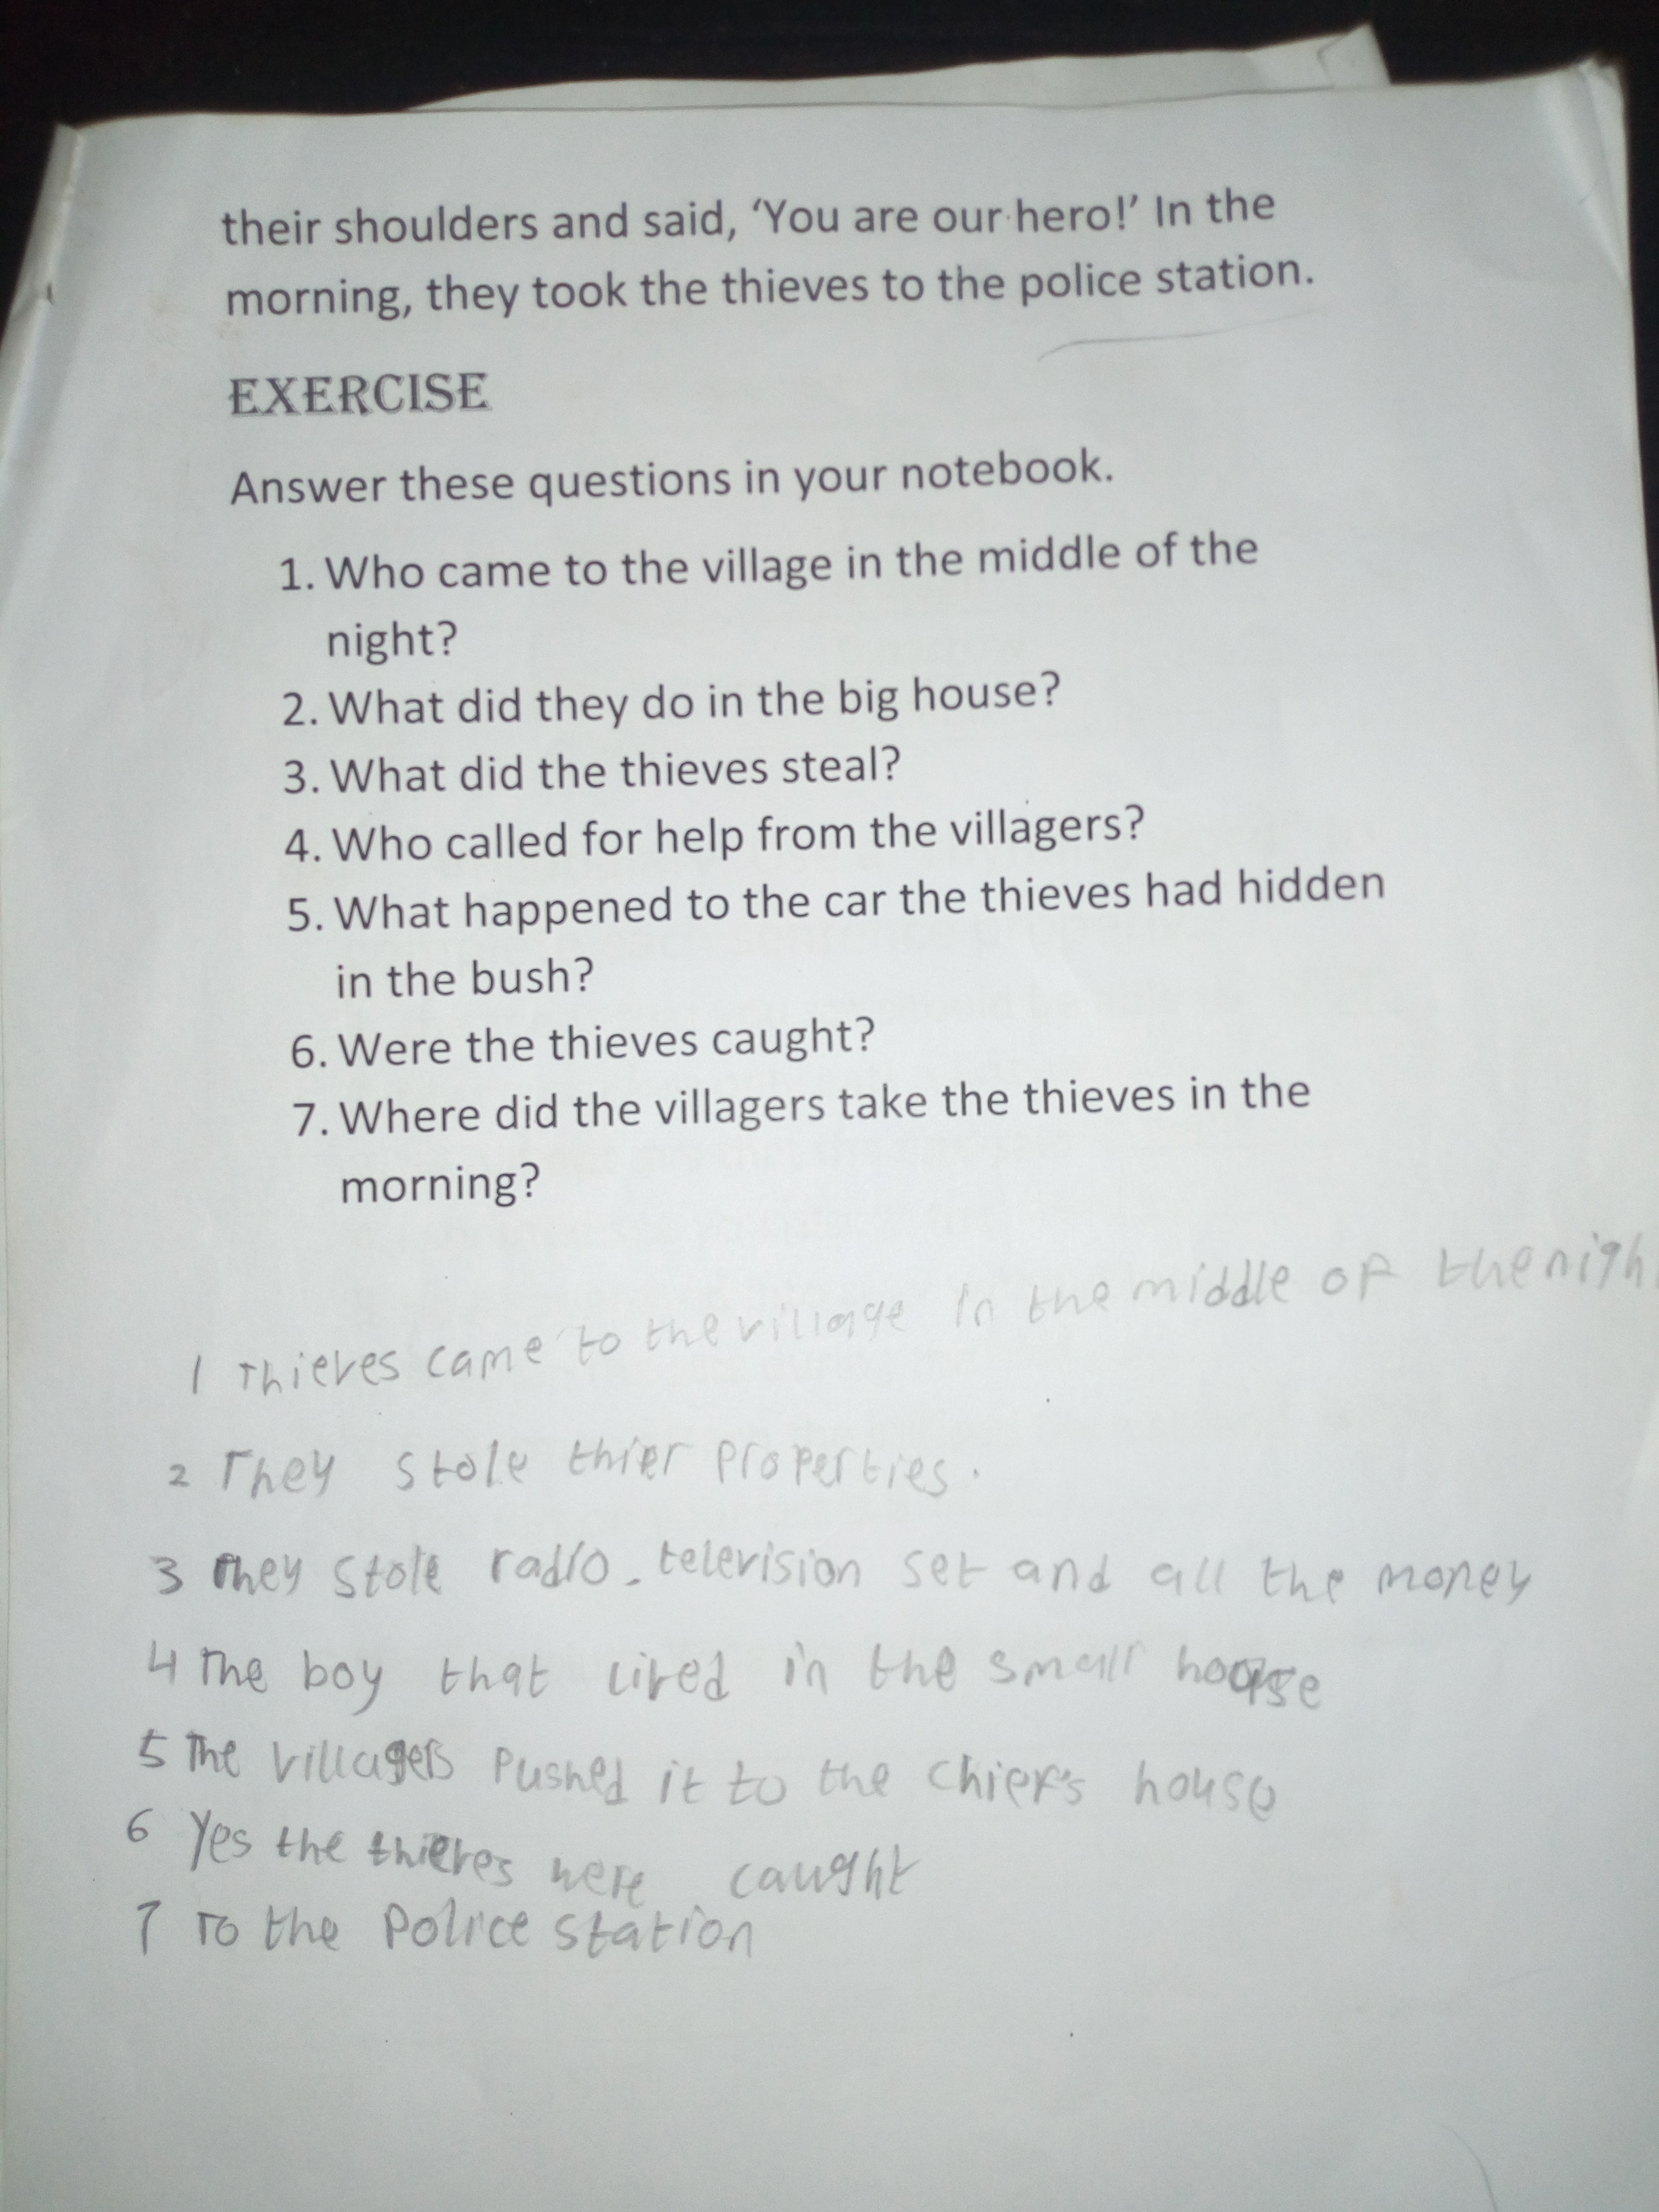 their shoulders and said, ‘You are our hero!’ In the
morning, they took the thieves to the police station.
EXERCISE
Answer these questions in your notebook.
1. Who came to the village in the middle of the
night?
2. What did they do in the big house?
3. What did the thieves steal?
4. Who called for help from the villagers?
5. What happened to the car the thieves had hidden
in the bush?
6. Were the thieves caught?
7. Where did the villagers take the thieves in the
morning?
1 Thieves came to the village in the middle of the nigh
2 They stole thier properties.
3 They stole radio - television set and all the money
4 The boy that lived in the small house
5 The villagers pushed it to the chief's house
6 Yes the thieves were caught
7 To the police station